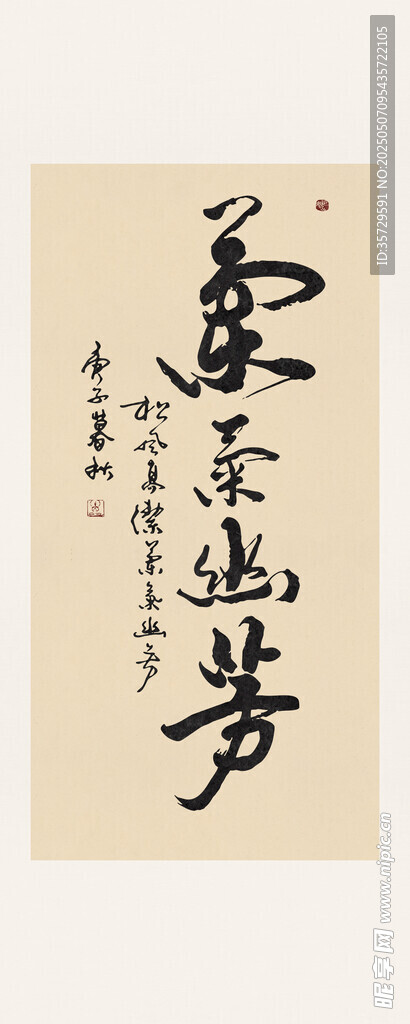 兰气幽芳
松风高洁兰气幽芳
庚子暮秋
ID:35729591 NO:20250507095435722105
昵享网 www.nipic.cn